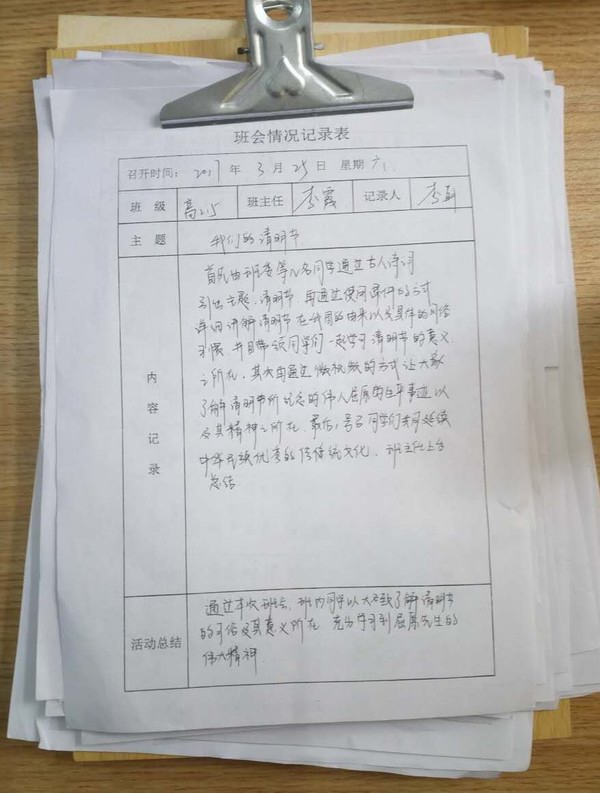 班会情况记录表
召开时间: 2017 年 3 月 25 日 星期 六
班 级 高二15 班主任 李霞 记录人 李
主 题 我们的清明节
内容记录
首先由班委等几名同学通过古人诗词
引出主题:清明节 再通过使用课件的方式
讲解清明节在我国的由来以及具体的习俗
习惯 并且带领同学们一起学习清明节的意义
之所在. 其次再通过微视频的方式让大家
了解清明节所纪念的伟人屈原的生平事迹以
及其精神之所在. 最后, 号召同学们共同延续
中华民族优秀的传传统文化. 班主任上台
总结.
活动总结
通过本次班会, 班内同学以大致了解清明节
的习俗及其意义所在 充分学习到屈原先生的
伟大精神